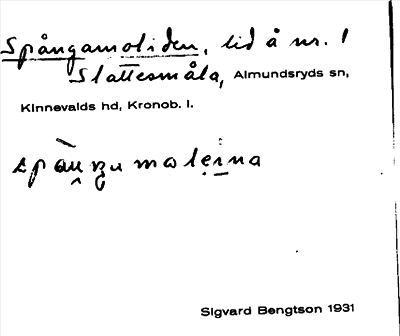 Spångamoliden, lid å nr. 1
Slättesmåla, Almundsryds sn,
Kinnevalds hd, Kronob. l.
Sigvard Bengtson 1931